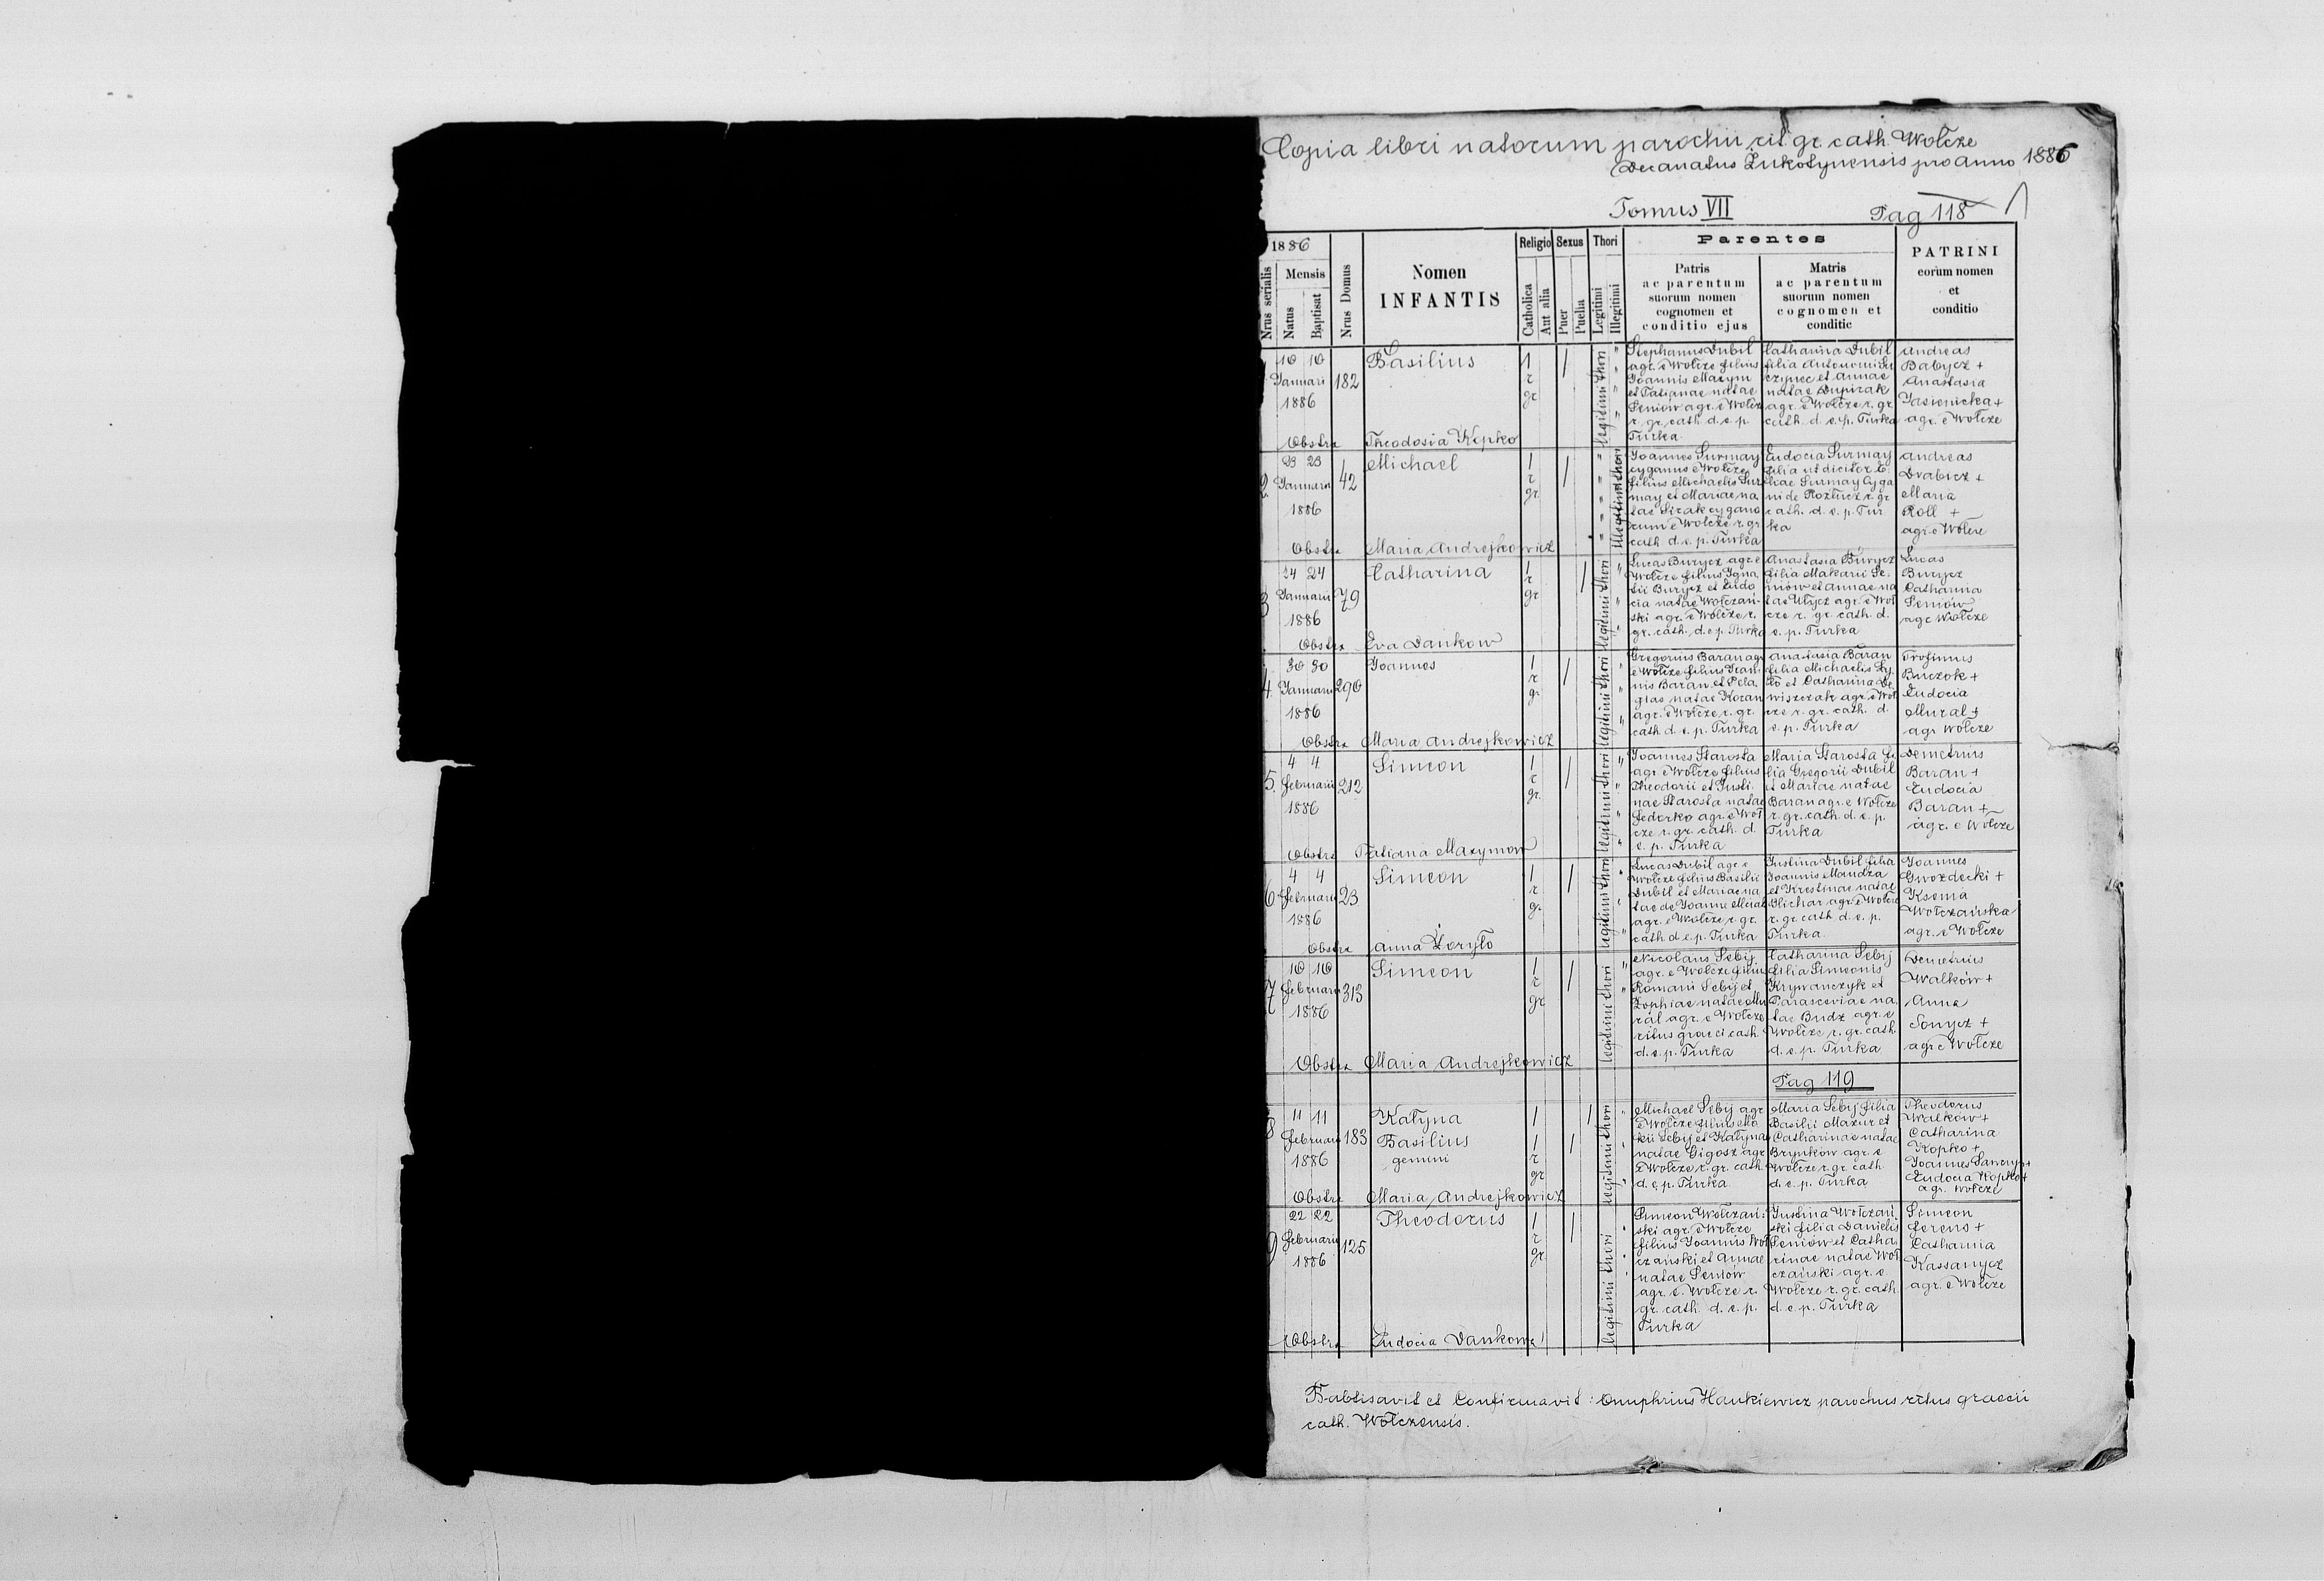 Copia libri natorum parochii rit. gr. cath. Wołcze
Decanatus Żukotynensis pro anno 1886
Tomus VII
Pag 118
1886
Nrus serialis
Mensis
Natus
Baptisat
Nrus Domus
Nomen
INFANTIS
Religio
Catholica
Aut alia
Sexus
Puer
Puella
Thori
Legitimi
Illegitimi
Parentes
Patris
ac parentum
suorum nomen
cognomen et
conditio ejus
Matris
ac parentum
suorum nomen
cognomen et
conditic
PATRINI
eorum nomen
et
conditio
10 10
Januari
1886
182
Basilius
1
r
gr
1
legitimi thori
Stephanus Dubil
agr. e Wołcze filius
Joannis Maxym
et Tatianae natae
Seniów agr. e Wołcze
r. gr. cath. d. e. p.
Turka
Catharina Dubil
filia Antonomi
et Annae
natae
agr. e Wołcze r. gr
cath. d. e. p. Turka
Andreas
Babycz +
Anastasia
Jasienicka +
agr. e Wołcze
Obstrx Theodosia Kopko
2
23 23
Januari
1886
42
Michael
1
r
gr
1
Illegitimi thori
Joannes Surmay
cyganus e Wołcze
filius Michaelis Sur
may et Mariae na
tae Sirak cygano
rum e Wołcze r. gr
cath. d. e. p. Turka
Eudocia Surmay
filia ut dicitur E
liae Surmay Cyga
ni de Rozłucz r. gr
cath. d. e. p. Tur
ka
Andreas
Drabicz +
Maria
Roll +
agr. e Wołcze
Obstrx Maria Andrejkowicz
3
24 24
Januarii
1886
79
Catharina
1
r
gr
1
legitimi thori
Lucas Burycz agr. e
Wołcze filius Igna
tii Burycz et Eudo
cia natae Wołczań-
ski agr. e Wołcze r.
gr. cath. d. e. p. Turka
Anastasia Burycz
filia Makarii Se-
niów et Annae na
tae Ułycz agr. e Woł
cze r. gr. cath. d.
e. p. Turka
Lucas
Burycz
Catharina
Seniów
agr. Wołcze
Obstrx Eva Dankow
4
30 30
Januarii
1886
290
Joannes
1
r
gr
1
legitimi thori
Gregorius Baran agr
e Wołcze filius Joan-
nis Baran et Pela
giae natae Kozan
agr. e Wołcze r. gr.
cath. d. e. p. Turka
Anastasia Baran
filia Michaelis
et Catharina De-
wiszczak agr. e Woł
cze r. gr. cath. d.
e. p. Turka
Trofimus
Buczok +
Eudocia
Mural +
agr. Wołcze
Obstrx Maria Andrejkowicz
5.
4 4
februarii
1886
212
Simeon
1
r
gr.
1
legitimi thori
Joannes Starosta
agr. e Wołcze filius
Theodorii et Justi-
nae Starosta natae
Fedorko agr. e Woł
cze r. gr. cath. d.
e. p. Turka
Maria Starosta fi-
lia Gregorii Dubil
et Mariae natae
Baran agr. e Wołcze
r. gr. cath. d. e. p.
Turka
Demetrius
Baran +
Eudocia
Baran +
agr. e Wołcze
Obstrx Tatiana Maxymow
6
4 4
februarii
1886
23
Simeon
1
r
gr
1
legitimi thori
Lucas Dubil agr. e
Wołcze filius Basilii
Dubil et Mariae na
tae de Joanne Mural
agr. e Wołcze r. gr.
cath. d. e. p. Turka
Justina Dubil filia
Joannis Mandza
et Krestinae natae
Blichar agr. e Wołcze
r. gr. cath. d. e. p.
Turka
Joannes
Gwozdecki +
Ksenia
Wołczańska
agr. e Wołcze
Obstrx Anna Żoryło
7
10 10
februari
1886
313
Simeon
1
r
gr
1
legitimi thori
Nicolaus Sebij
agr. e Wołcze filius
Romani Sebij et
Zophiae natae Mu
ral agr. e Wołcze
ritus graeci cath.
d. e. p. Turka
Catharina Sebij
filia Simeonis
Krywanczyk et
Parasceviae na
tae Budz agr. e
Wołcze r. gr. cath.
d. e. p. Turka
Demetrius
Walków +
Anna
Sonycz +
agr. e Wołcze
Obstrx Maria Andrejkowicz
Pag 119
8
11 11
februari
1886
183
Katyna
Basilius
gemini
1
1
r
gr
1
1
legitimi thori
Michael Sebij agr
e Wołcze filius
Sebij et Katyna
natae Gigosz agr
e Wołcze r. gr. cath.
d. e. p. Turka
Maria Sebij filia
Basilii Mazur et
Catharinae natae
Brynków agr. e
Wołcze r. gr. cath.
d. e. p. Turka
Theodorus
Walków +
Catharina
Kopko +
Joannes
Eudocia Kopko +
agr. Wołcze
Obstrx Maria Andrejkowicz
9
22 22
februarii
1886
125
Theodorus
1
r
gr
1
legitimi thori
Simeon Wołczań-
ski agr. e Wołcze
filius Joannis Woł
czański et Annae
natae Seniów
agr. e. Wołcze r.
gr. cath. d. e. p.
Turka
Justina Wołczań
ski filia Danielis
Seniów et Catha
rinae natae Woł
czański agr. e
Wołcze r. gr. cath.
d. e. p. Turka
Simeon
Ferens +
Catharina
Kassanycz
agr. e Wołcze
Obstrx Eudocia Dankowa
Babtisavit et Confirmavit: Onuphrius Hankiewicz parochus ritus graecii
cath. Wołczensis.